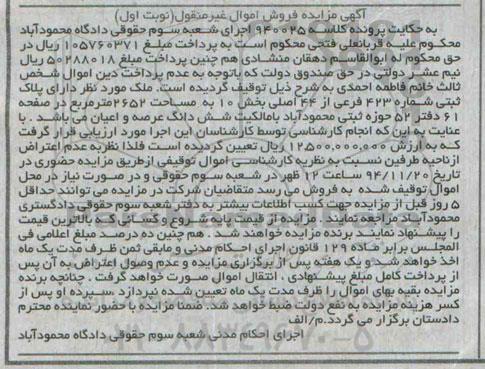 آگهی مزایده فروش اموال غیرمنقول(نوبت اول)
به حکایت پرونده کلاسه ۹۴۰۰۲۵ اجرای شعبه سوم حقوقی دادگاه محمودآباد
محکوم علیه قربانعلی فتحی محکوم است به پرداخت مبلغ ۱۰۵۷۶۰۳۷۱ ریال در
حق محکوم له ابوالقاسم دهقان منشادی هم چنین پرداخت مبلغ ۵۰۲۸۸۰۱۸ ریال
نیم عشر دولتی در حق صندوق دولت که باتوجه به عدم پرداخت دین اموال شخص
ثالث خانم فاطمه احمدی به شرح ذیل توقیف گردیده است. ملک مورد نظر دارای پلاک
ثبتی شماره ۴۲۳ فرعی از ۴۴ اصلی بخش ۱۰ به مساحت ۲۶۵۲مترمربع در صفحه
۶۱ دفتر ۵۲ حوزه ثبتی محمودآباد بامالکیت شش دانگ عرصه و اعیان می باشد . با
عنایت به این که انجام کارشناسی توسط کارشناسان این اجرا مورد ارزیابی قرار گرفت
که به ارزش ۱۲۵۰۰,۰۰۰,۰۰۰ ریال تعیین گردیده است فلذا نظربه عدم اعتراض
ازناحیه طرفین نسبت به نظریه کارشناسی اموال توقیفی ازطریق مزایده حضوری در
تاریخ ۹۴/۱۱/۲۰ ساعت ۱۲ ظهر در شعبه سوم حقوقی و در صورت نیاز در محل
اموال توقیف شده به فروش می رسد متقاضیان شرکت در مزایده می توانند حداقل
۵ روز قبل از مزایده جهت کسب اطلاعات بیشتر به دفتر شعبه سوم حقوقی دادگستری
محمودآباد مراجعه نمایند . مزایده از قیمت پایه شروع و کسانی که بالاترین قیمت
را پیشنهاد نمایند برنده مزایده خواهند شد . هم چنین ده درصد مبلغ اعلامی فی
المجلس برابر ماده ۱۲۹ قانون اجرای احکام مدنی و مابقی ثمن ظرف مدت یک ماه
اخذ خواهد شد و یک هفته پس از برگزاری مزایده و عدم وصول اعتراض به آن پس
از پرداخت کامل مبلغ پیشنهادی ، انتقال اموال صورت خواهد گرفت . چنانچه برنده
مزایده بقیه بهای اموال را ظرف مدت یک ماه تعیین شده نپردازد ،سپرده او پس از
کسر هزینه مزایده به نفع دولت ضبط خواهد شد. ضمنا مزایده با حضور نماینده محترم
دادستان برگزار می گردد.م/الف
اجرای احکام مدنی شعبه سوم حقوقی دادگاه محمودآباد